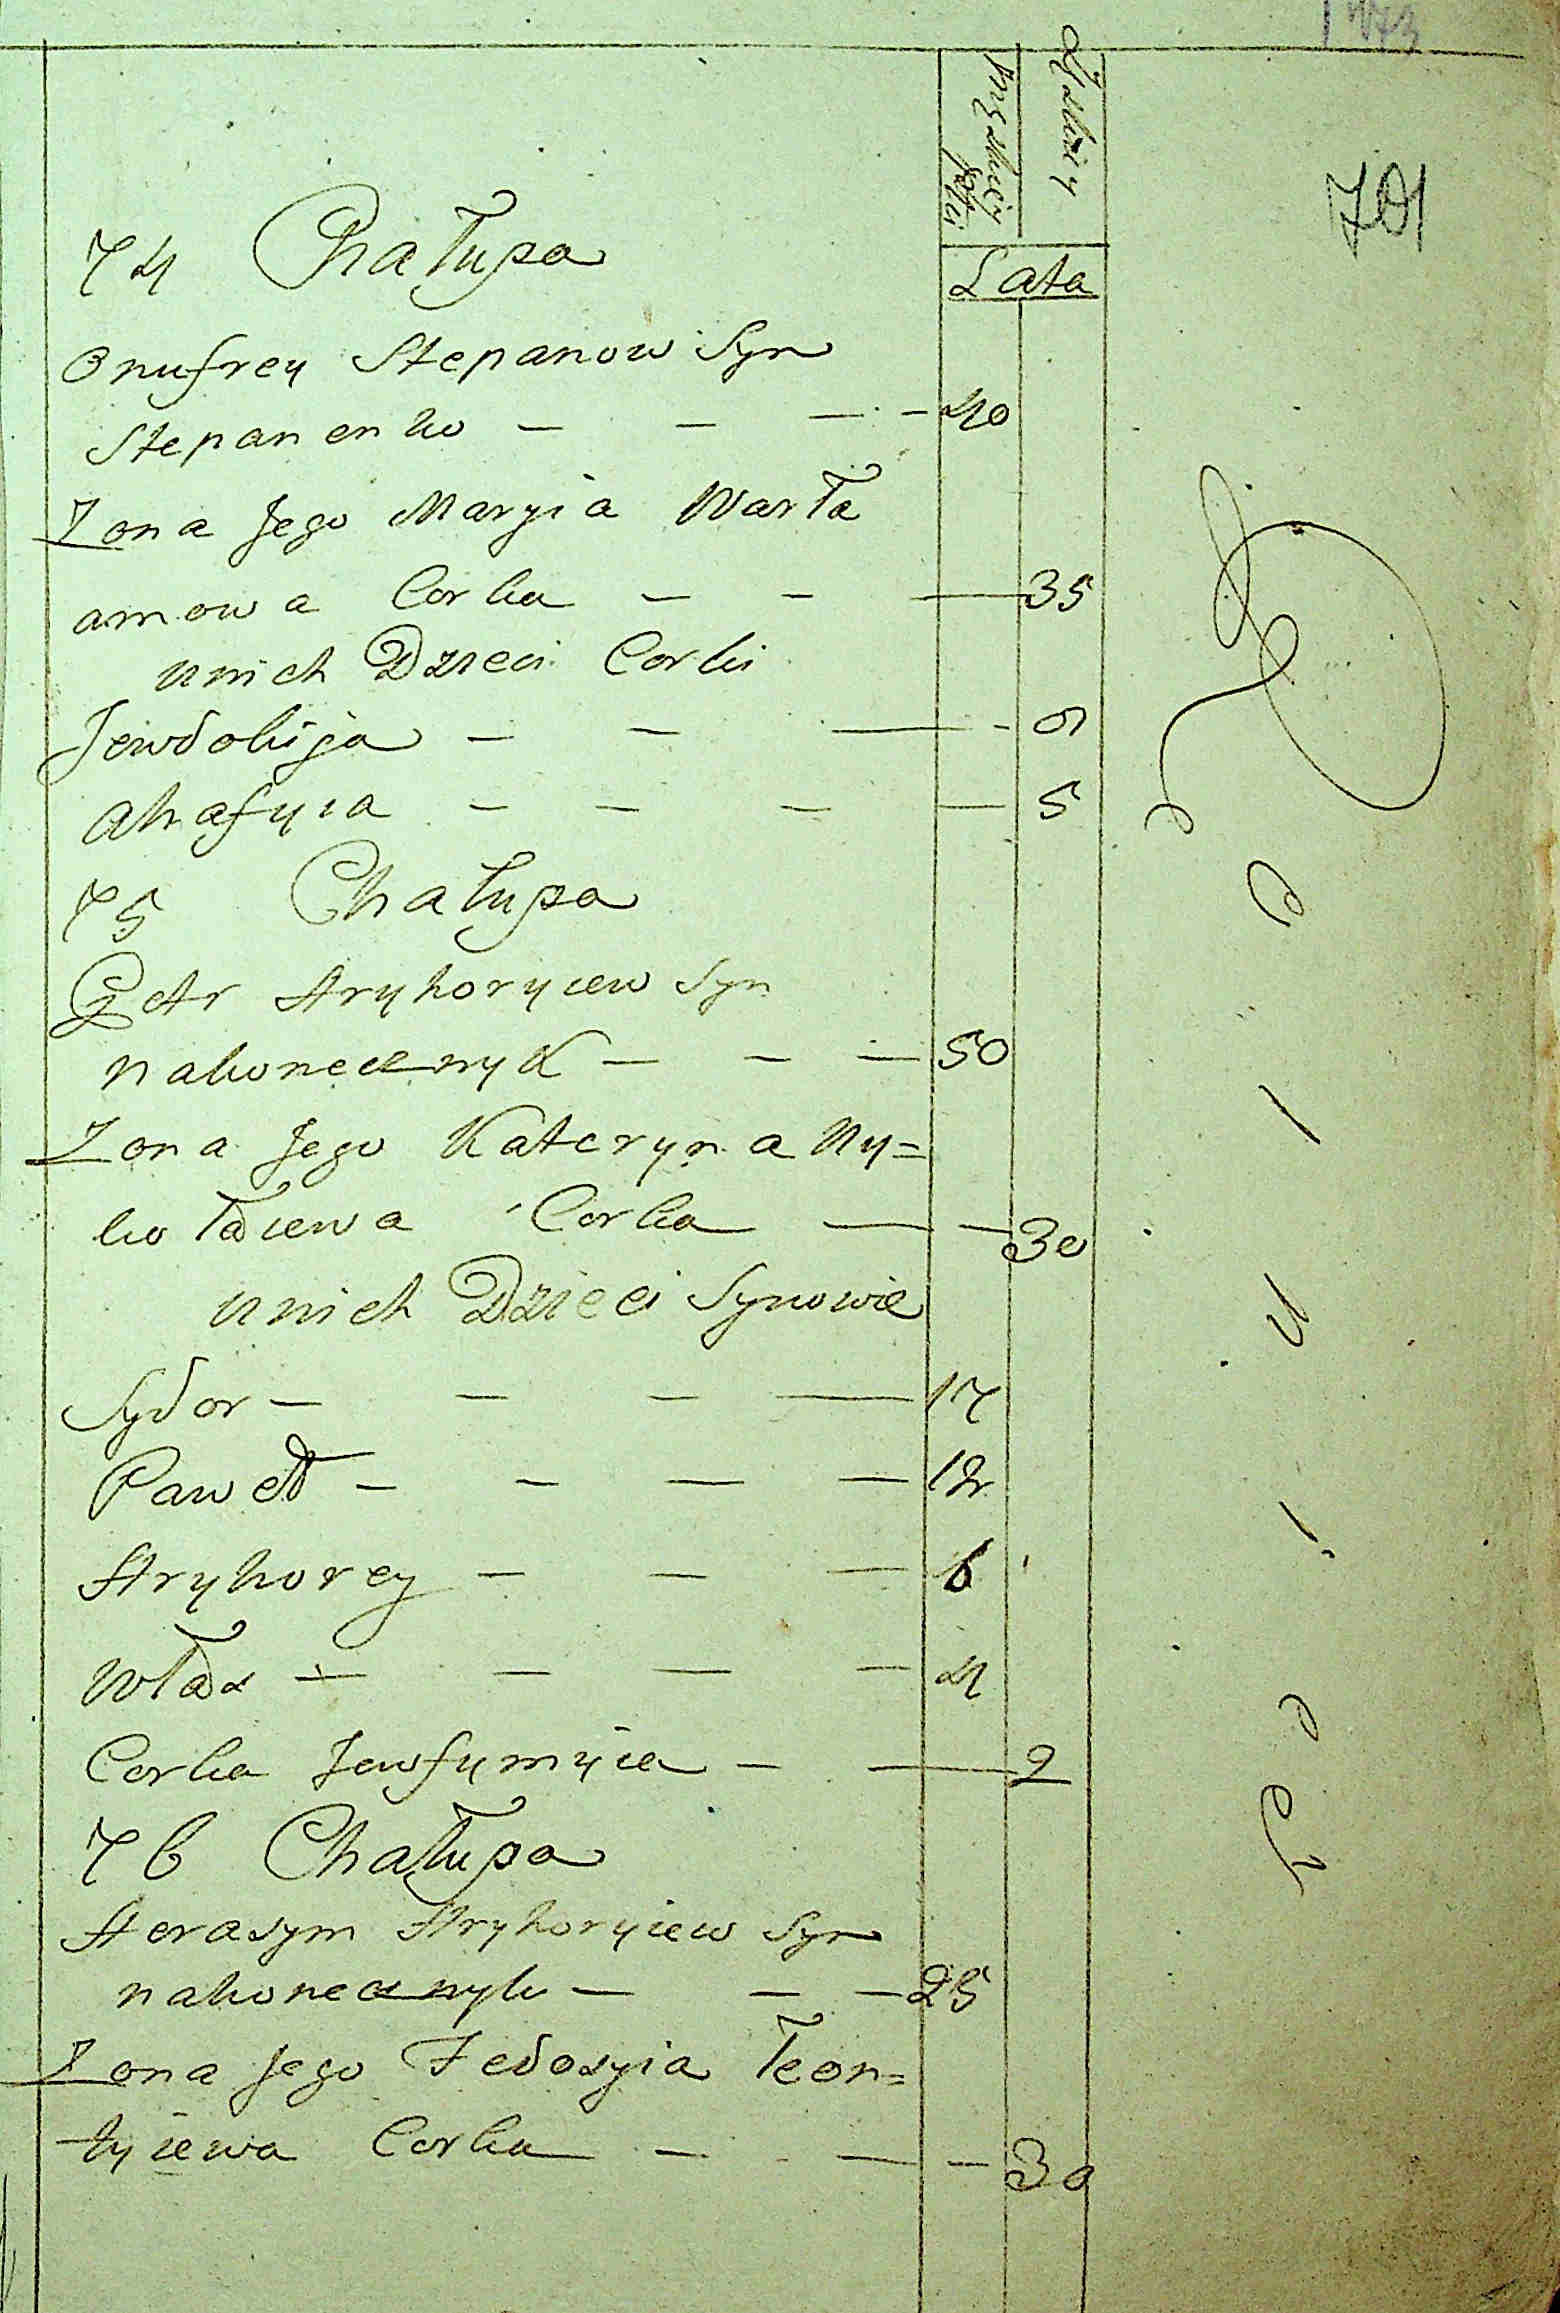 701
Męzkiey płci
Żeńskiey
Lata
74 Chałupa
Onufrey Stepanow Syn
Stepanenko — — — 40
Zona Jego Maryia Warła
amowa Corka — — — 35
u nich Dzieci Corki
Jewdokija — — — 9
Ahafyia — — — — 5
75 Chałupa
Petr Hryhoryiew Syn
nakonecznyk — — — 50
Zona Jego Kateryna Ny=
kołaiewa Corka — — 30
u nich Dzieci Synowie
Sydor — — — — 17
Paweł — — — — 12
Hryhorey — — — 6
Włas — — — — 4
Corka Jewfymyia — — 2
76 Chałupa
Herasym Hryhoryiew Syn
nakonecznyk — — — 25
Zona Jego Fedosyia Leon=
tyiewa Corka — — — 30